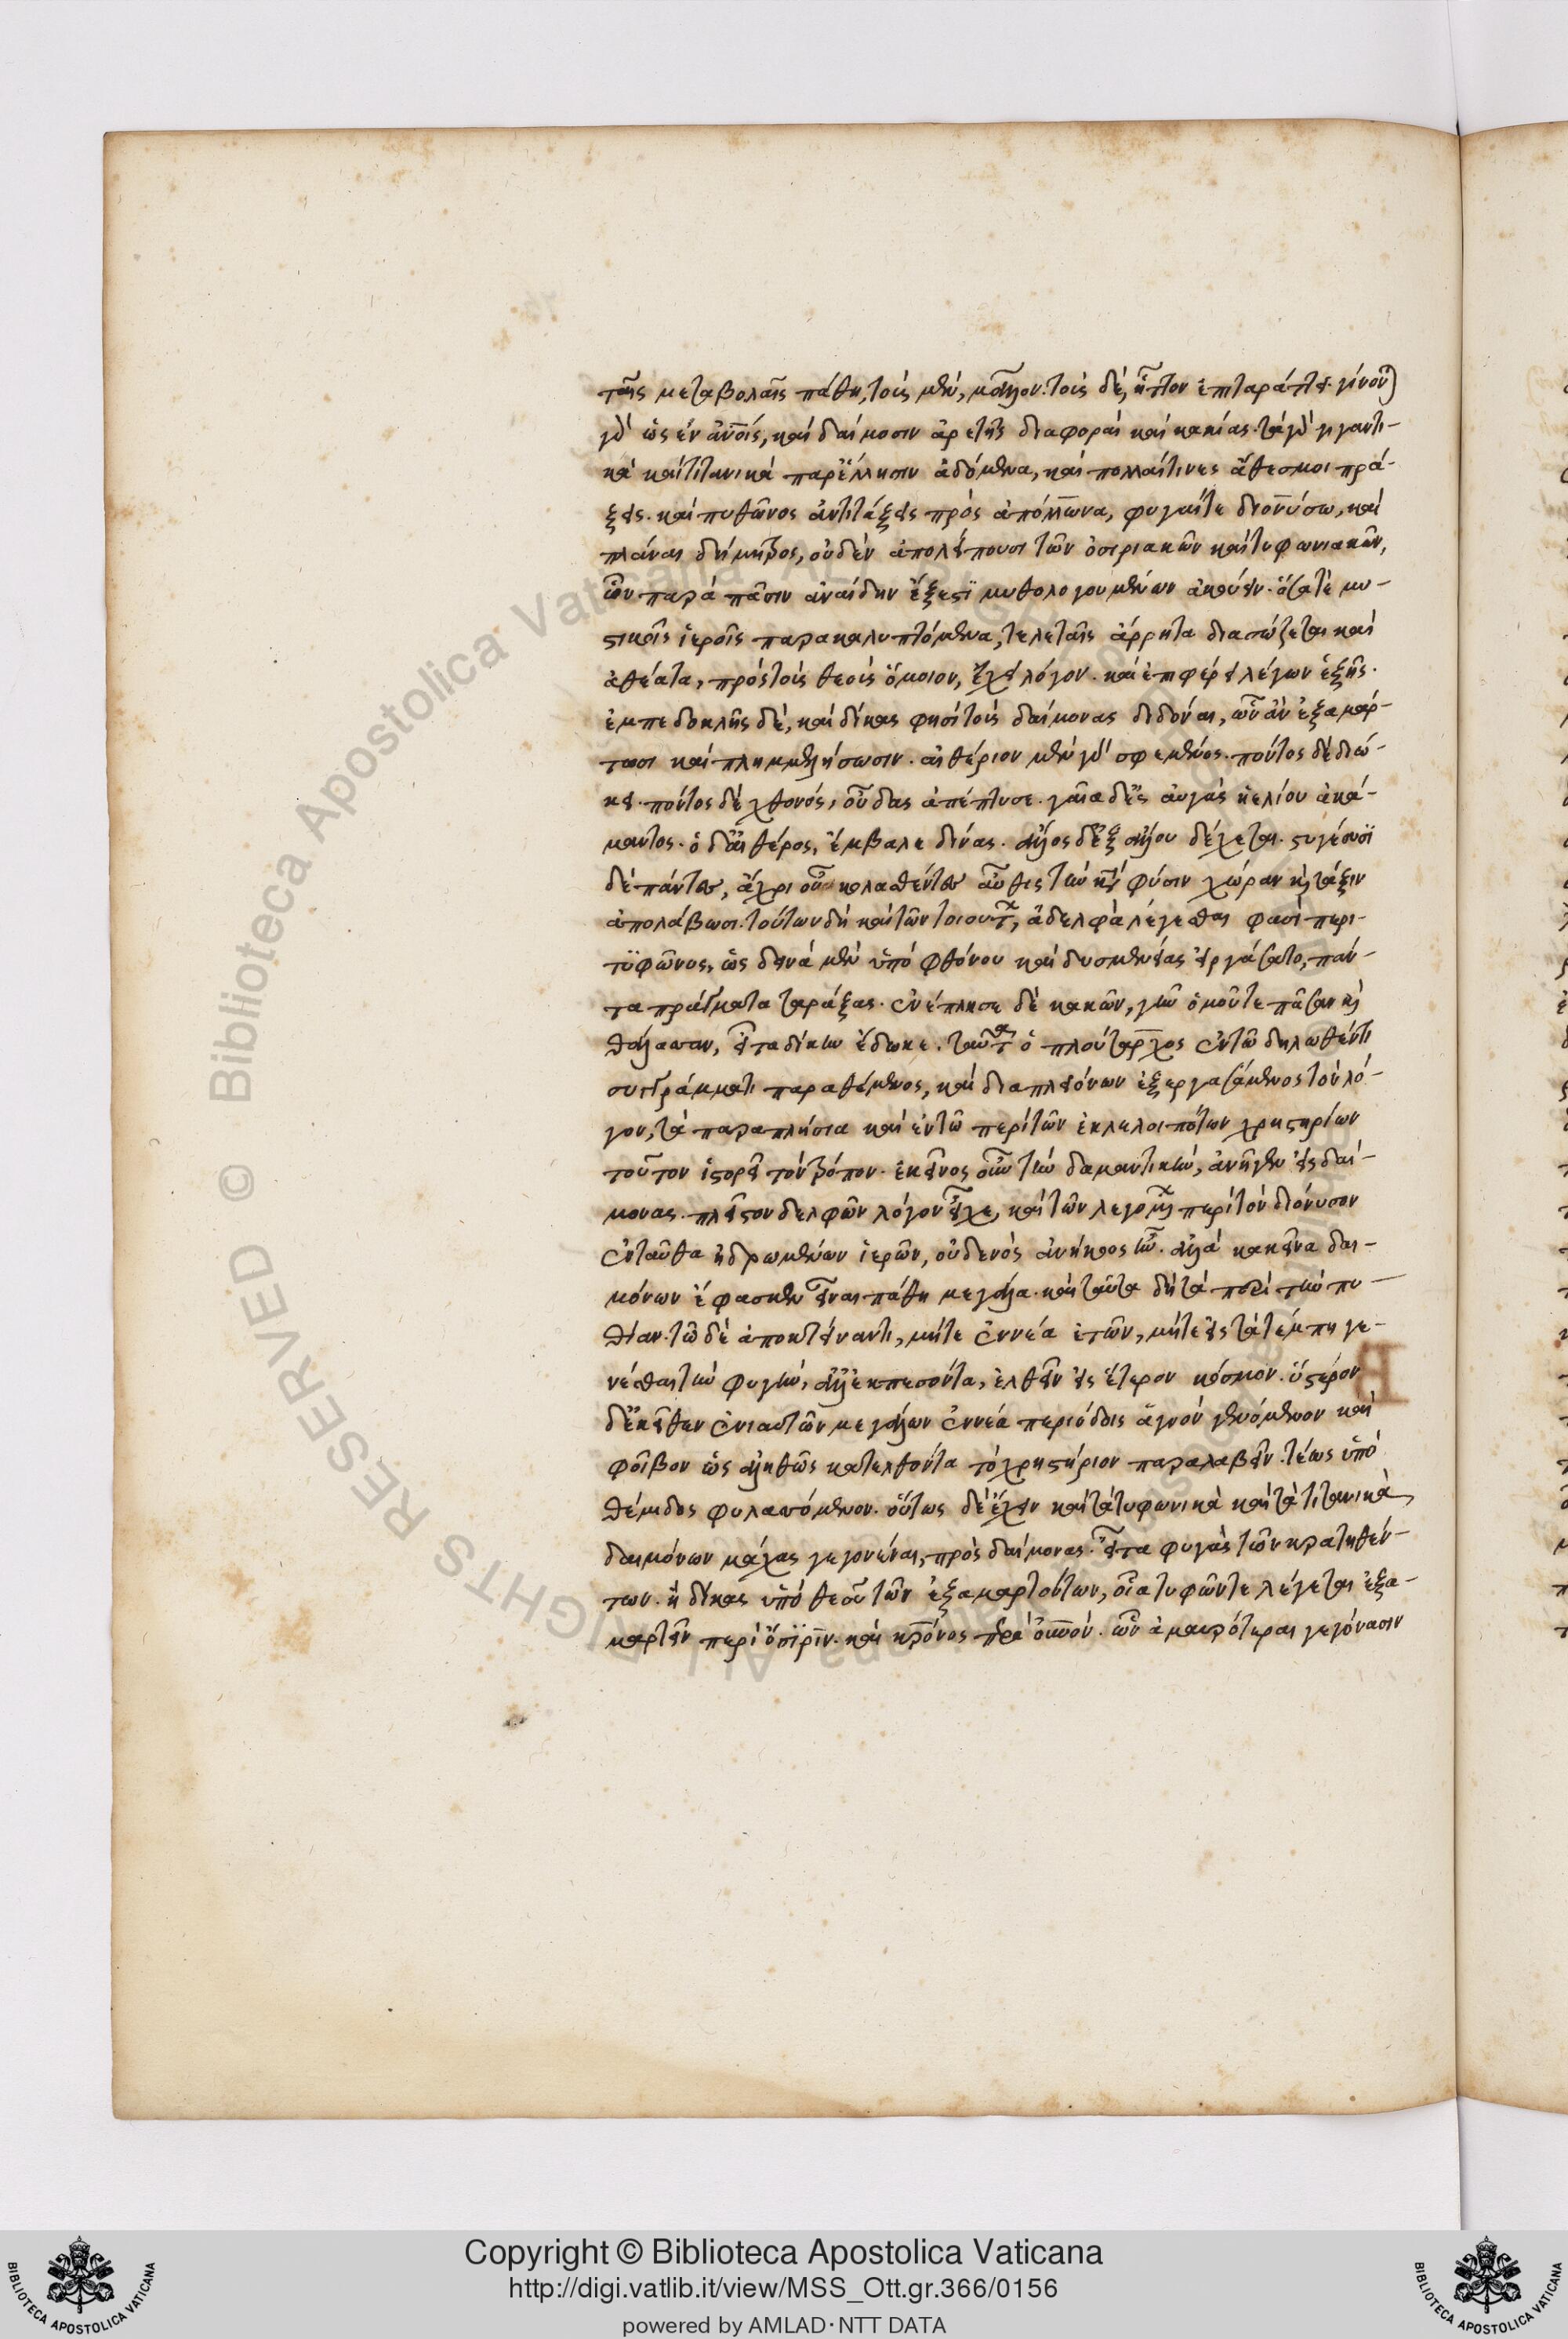 ταῖς μεταβολαῖς πάθη, τοὺς μὲν, μᾶλλον. τοὺς δὲ, ἧττον ἐπιταράττει. γίνονται
γὰρ ὡς ἐν ἀνοις, καὶ δαίμοσιν ἀρετῆς διαφοραὶ καὶ κακίας. τὰ γὰρ γιγαντι-
κὰ καὶ τιτανικὰ παρ' ἕλλησιν ἀδόμενα, καὶ πολλαί τινες ἄθεσμοι πρά-
ξεις. καὶ πυθῶνος ἀντιτάξεις πρὸς ἀπόλλωνα, φυγαί τε διονύσω, καὶ
πλάναι δήμητρος, οὐδὲν ἀπολείπουσι τῶν ὀσιριακῶν καὶ τυφωνιακῶν,
ὧν παρὰ πᾶσιν ἀναίδην ἔξεστϊ μυθολογουμένων ἀκούειν. ὅσα τὲ μυ-
στικοῖς ἱεροῖς παρακαλυπτόμενα, τελεταῖς ἄρρητα διασώζεται καὶ
ἀθέατα, πρὸς τοὺς θεοὺς ὅμοιον, ἔχει λόγον. καὶ ἐπιφέρει λέγων ἑξῆς.
ἐμπεδοκλῆς δὲ, καὶ δίκας φησὶ τοὺς δαίμονας διδόναι, ὧν ἂν ἐξαμάρ-
τωσι καὶ πλημμελήσωσιν. αἰθέριον μὲν γὰρ σφε μένος. πόντος δὲ διώ-
κει. πόντος δὲ χθονός, οὖδας ἀπέπτυσε. γαῖα δ' ἐς αὐγὰς ἠελίου ἀκά-
μαντος. ὁ δ' αἰθέρος, ἔμβαλε δίνας. ἄλλος δ' ἐξ ἄλλου δέχεται. στυγέουσϊ
δὲ πάντες, ἄχρι οὗ κολασθέντες αὖθις τὴν κατὰ φύσιν χώραν καὶ τάξιν
ἀπολάβωσι. τούτων δὴ καὶ τῶν τοιούτων, ἀδελφὰ λέγεσθαι φασὶ περὶ
τϋφῶνος, ὡς δεινὰ μὲν ὑπὸ φθόνου καὶ δυσμενείας εἰργάσατο, πάν-
τα πράγματα ταράξας. ἐνέπλησε δὲ κακῶν, γῆν ὁμοῦ τε πᾶσαν καὶ
θάλασσαν, εἶτα δίκην ἔδωκε. ταῦτα ὁ πλούταρχος ἐν τῶ δηλωθέντι
συγγράμματι παραθέμενος, καὶ διαπλειόνων ἐξεργασάμενος τὸν λό-
γον, τὰ παραπλήσια καὶ ἐν τῶ περὶ τῶν ἐκλελοιπότων χρηστηρίων
τοῦτον ἱστορεῖ τὸν τρόπον. ἐκεῖνος οὖν τὴν δαμαντικὴν, ἀνῆγεν εἰς δαί-
μονας. πλεῖστον δελφῶν λόγον εἶχε, καὶ τῶν λεγομένων περὶ τὸν διόνυσον
ἐνταῦθα ἡδρωμένων ἱερῶν, οὐδενὸς ἀνήκοος ἦν. ἀλλὰ κακεῖνα δαι-
μόνων ἔφασκεν εἶναι πάθη μεγάλα. καὶ ταῦτα δὴ τὰ περὶ τὴν πυ-
θίαν. τῶ δὲ ἀποκτείναντι, μήτε ἐννέα ἐτῶν, μήτε εἰς τὰ τέμπη γε-
νέσθαι τὴν φυγὴν, ἀλλ' ἐκπεσόντα, ἐλθεῖν εἰς ἕτερον κόσμον. ὕστερον
δ' ἐκεῖθεν ἐνιαυτῶν μεγάλων ἐννέα περιόδοις ἁγνὸν γενόμενον καὶ
φοῖβον ὡς ἀληθῶς κατελθόντα τὸ χρηστήριον παραλαβεῖν. τέως ὑπὸ
θέμιδος φυλασσόμενον. οὕτως δὲ ἔχειν καὶ τὰ τυφωνικὰ καὶ τὰ τιτανικὰ,
δαιμόνων μάχας γεγονέναι, πρὸς δαίμονας. εἶτα φυγὰς τῶν κρατηθέν-
των. ἢ δίκας ὑπὸ θεοῦ τῶν ἐξαμαρτόντων, οἷα τυφῶν τε λέγεται ἐξα-
μαρτεῖν περὶ ὄσϊρϊν. καὶ κρόνος πρὸς οὐνὸν. ὧν ἀμαυρότεραι γεγόνασιν
Copyright © Biblioteca Apostolica Vaticana
http://digi.vatlib.it/view/MSS_Ott.gr.366/0156
powered by AMLAD·NTT DATA